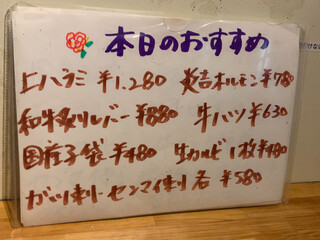 本日のおすすめ
上ハラミ ¥1.280 炎吉ホルモン ¥780
和牛炙りレバー ¥880 牛ハツ ¥630
国産子袋 ¥480 生カルビ1枚 ¥480
ガツ刺・センマイ刺 各 ¥580